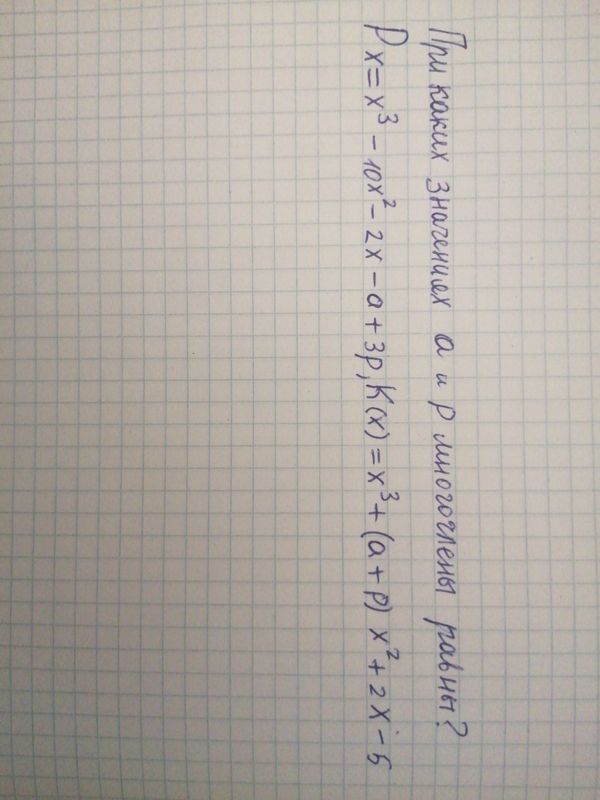 При каких значениях a и p многочлены равны?
P x = x³ - 10x² - 2x - a + 3p, K(x) = x³ + (a + p) x² + 2x - 5